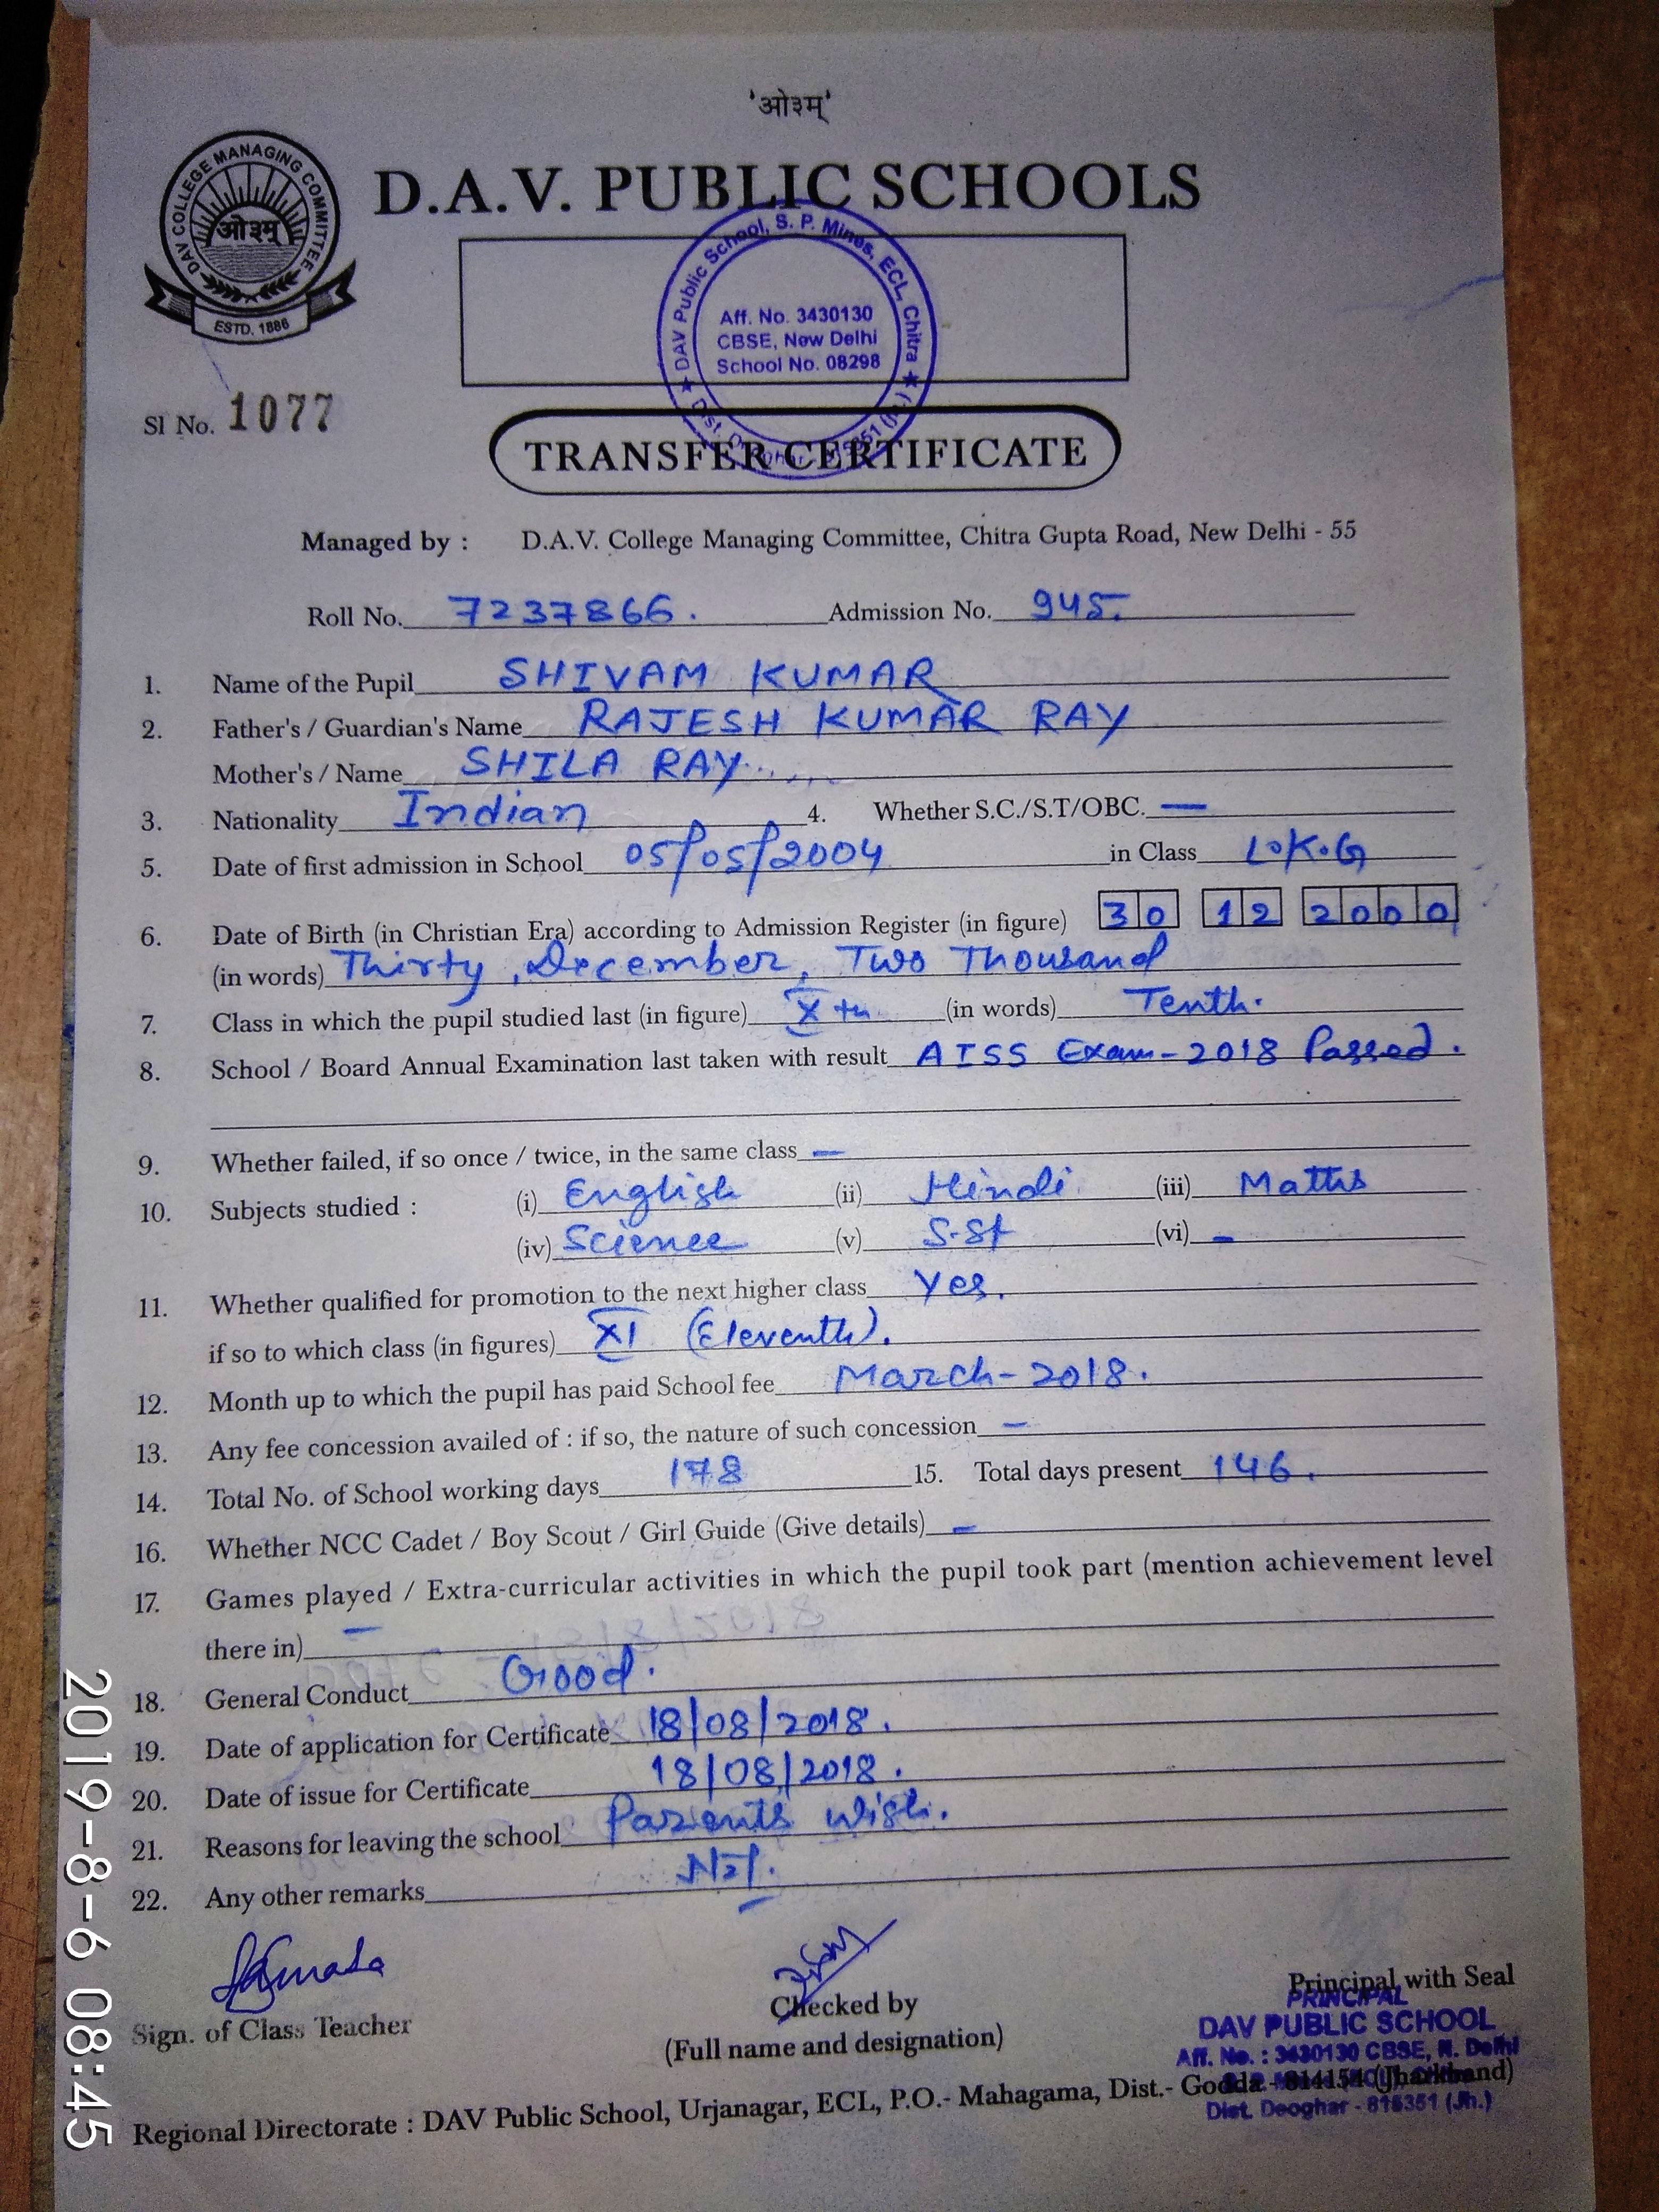 'ओ३म्'
DAV COLLEGE MANAGING COMMITTEE
ओ३म्
ESTD. 1886
D.A.V. PUBLIC SCHOOLS
DAV Public School, S. P. Mines, ECL, Chitra
Aff. No. 3430130
CBSE, New Delhi
School No. 08298
Sl No. 1077
TRANSFER CERTIFICATE
Managed by : D.A.V. College Managing Committee, Chitra Gupta Road, New Delhi - 55
Roll No. 7237866. Admission No. 945.
1. Name of the Pupil SHIVAM KUMAR
2. Father's / Guardian's Name RAJESH KUMAR RAY
Mother's / Name SHILA RAY
3. Nationality Indian 4. Whether S.C./S.T/OBC. —
5. Date of first admission in School 05/05/2004 in Class L.K.G
6. Date of Birth (in Christian Era) according to Admission Register (in figure) 30 12 2000
(in words) Thirty, December, Two Thousand
7. Class in which the pupil studied last (in figure) Xth (in words) Tenth.
8. School / Board Annual Examination last taken with result AISS Exam-2018 Passed.
9. Whether failed, if so once / twice, in the same class —
10. Subjects studied : (i) English (ii) Hindi (iii) Maths
(iv) Science (v) S.St (vi) -
11. Whether qualified for promotion to the next higher class Yes.
if so to which class (in figures) XI (Eleventh).
12. Month up to which the pupil has paid School fee March-2018.
13. Any fee concession availed of : if so, the nature of such concession —
14. Total No. of School working days 178 15. Total days present 146.
16. Whether NCC Cadet / Boy Scout / Girl Guide (Give details) -
17. Games played / Extra-curricular activities in which the pupil took part (mention achievement level
there in) -
18. General Conduct Good.
19. Date of application for Certificate 18/08/2018.
20. Date of issue for Certificate 18/08/2018.
21. Reasons for leaving the school Parents wish.
22. Any other remarks Nil.
Sign. of Class Teacher
Checked by
(Full name and designation)
Principal with Seal
PRINCIPAL
DAV PUBLIC SCHOOL
Aff. No. : 3430130 CBSE, N. Delhi
Dist. Deoghar - 815351 (Jh.)
Regional Directorate : DAV Public School, Urjanagar, ECL, P.O.- Mahagama, Dist.- Godda - 814154 (Jharkhand)
2019-8-6 08:45